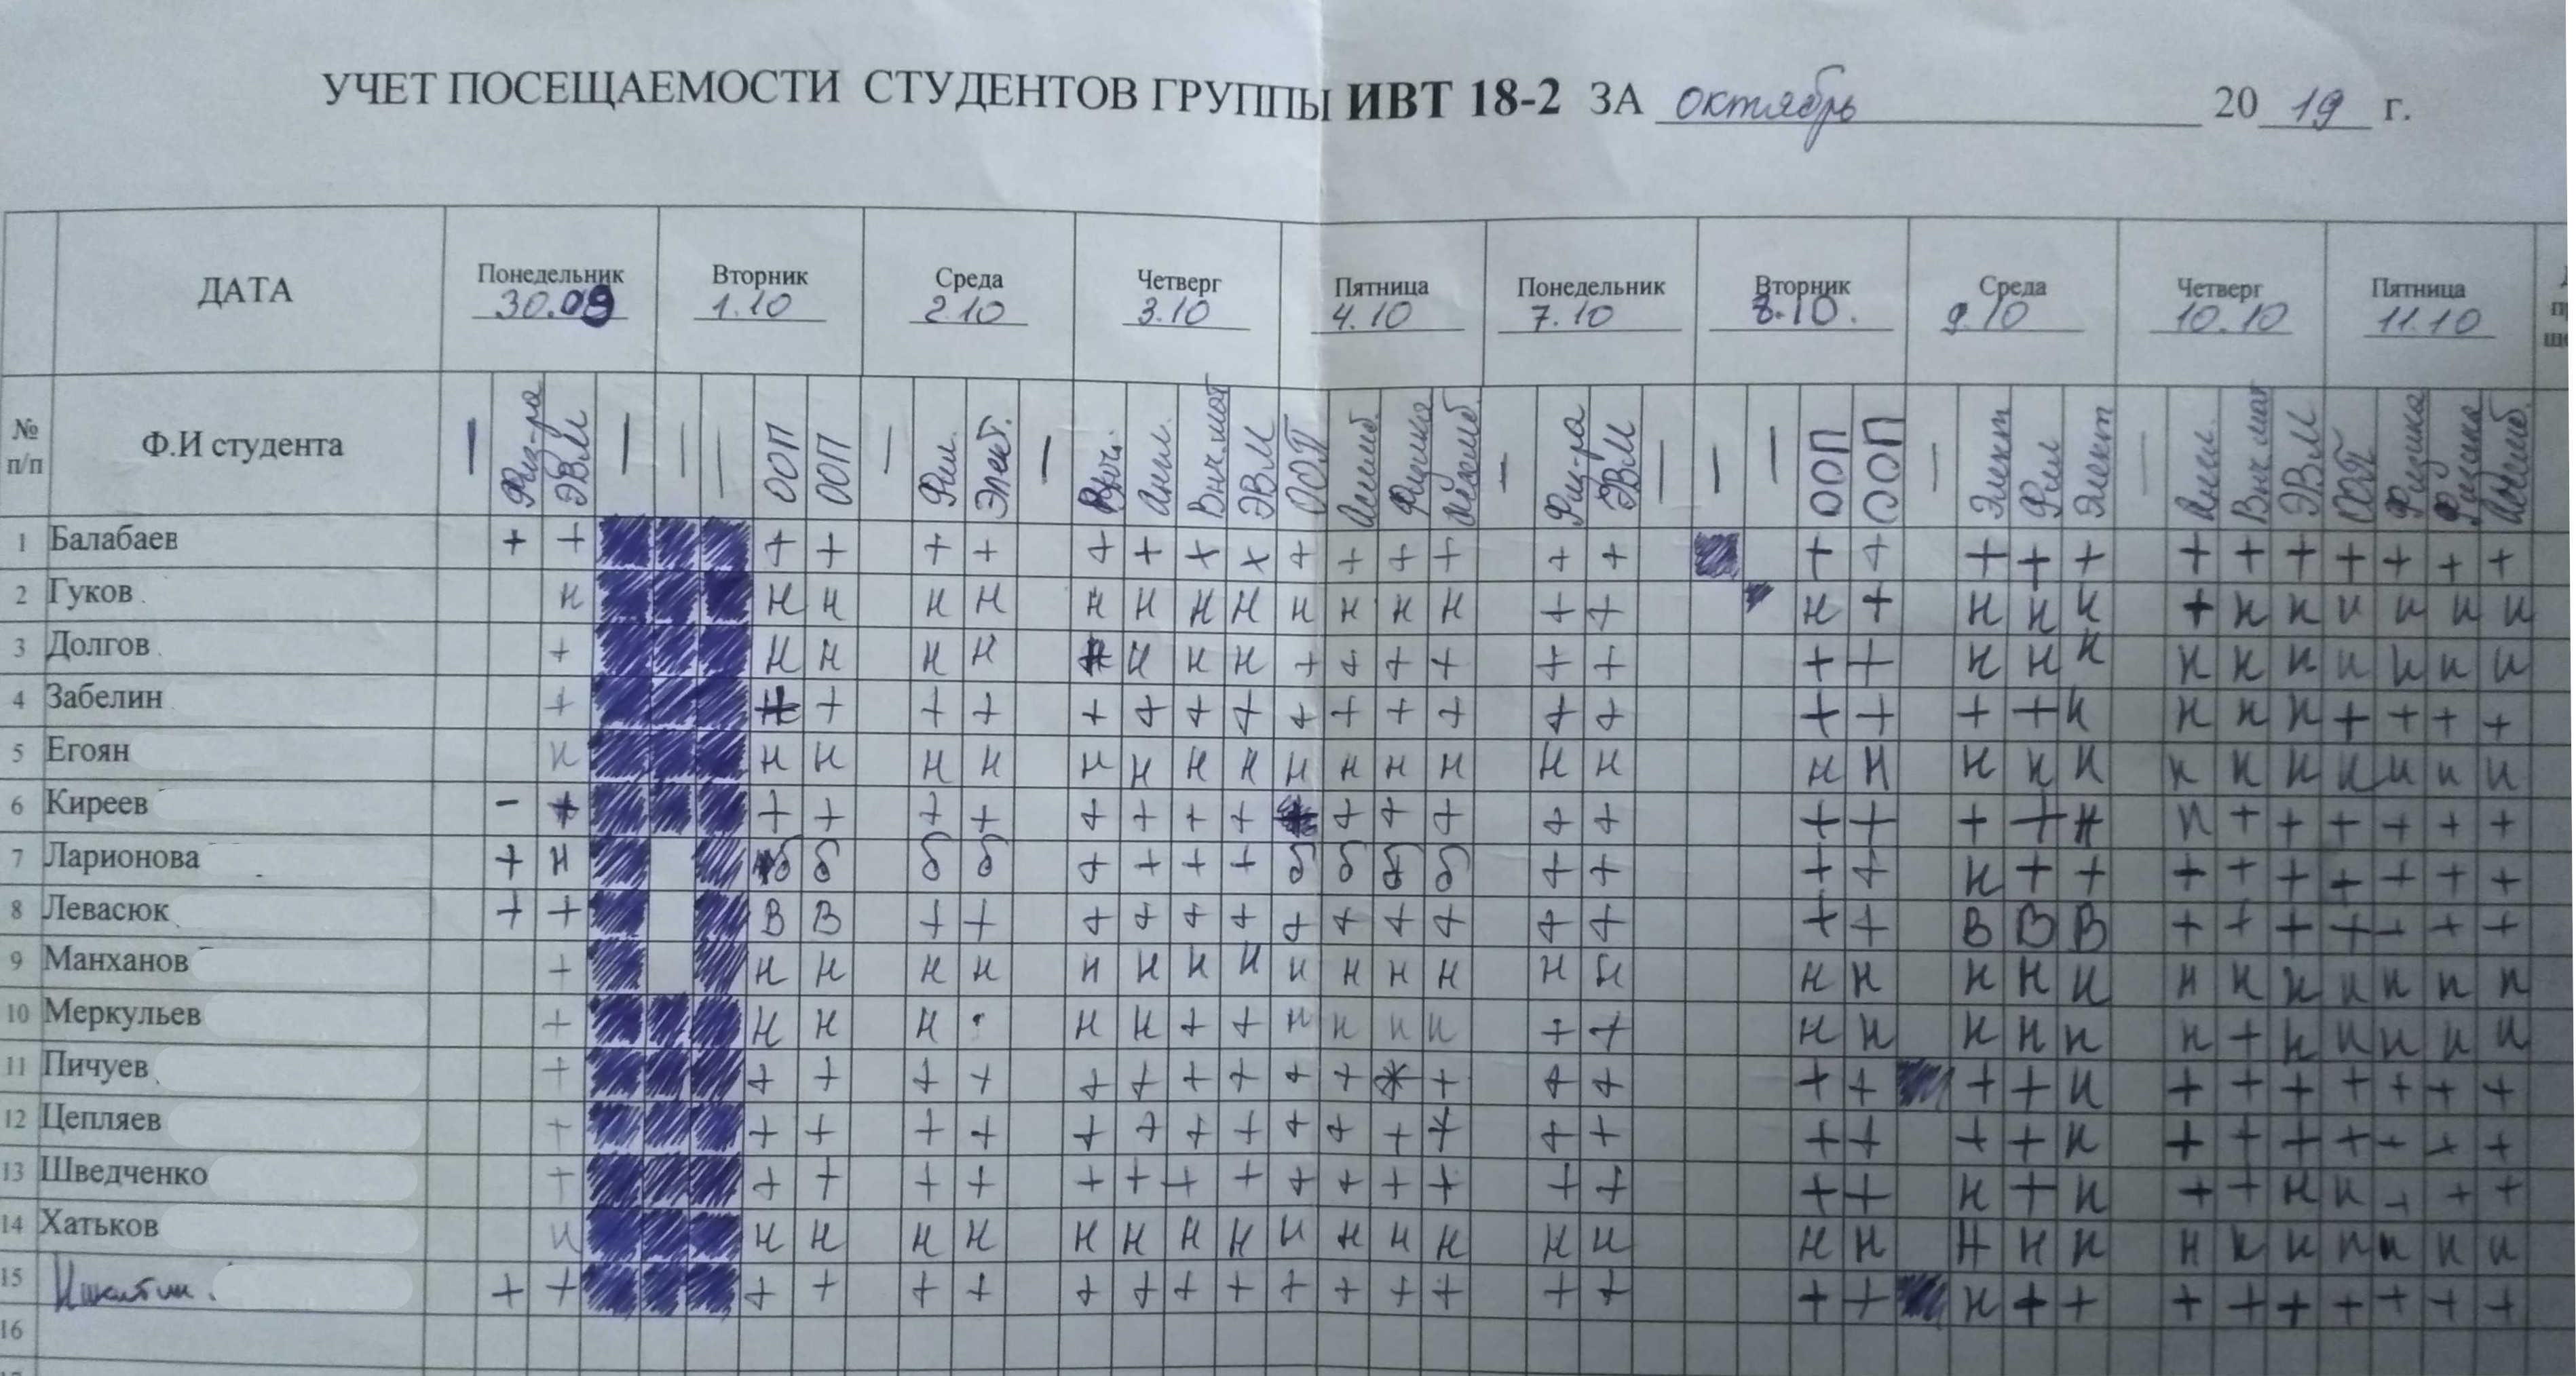 УЧЕТ ПОСЕЩАЕМОСТИ СТУДЕНТОВ ГРУППЫ ИВТ 18-2 ЗА октябрь 2019 г.
ДАТА Понедельник 30.09 Вторник 1.10 Среда 2.10 Четверг 3.10 Пятница 4.10 Понедельник 7.10 Вторник 8.10. Среда 9.10 Четверг 10.10 Пятница 11.10
№ п/п Ф.И студента — Физ-ра ЭВМ — — — ООП ООП — Фил. Элект. — Англ. Выч.мат ЭВМ ООП Ассемб. Физика Ассемб. — Физ-ра ЭВМ — — — ООП ООП — Элект Фил Элект — Англ. Выч.мат ЭВМ ООП Физика Физика Ассемб.
1 Балабаев + + + + + + + + х х + + + + + + + + + + + + + + + + + +
2 Гуков н н н н н н н н н н н н н + + н + н н н + н н н н н н
3 Долгов + н н н н н н н + + + + + + + + н н н н н н н н н н
4 Забелин + + + + + + + + + + + + + + + + + + н н н н + + + +
5 Егоян н н н н н н н н н н н н н н н н н н н н н н н н н н н
6 Киреев - + + + + + + + + + + + + + + + + + + н н + + + + + +
7 Ларионова + н б б б б + + + + б б б б + + + + н + + + + + + + + +
8 Левасюк + + В В + + + + + + + + + + + + + + В В В + + + + + + +
9 Манханов + н н н н н н н н н н н н н н н н н н н н н н н н н н
10 Меркульев + н н н · н н + + н н н н + + н н н н н н + н н н н н
11 Пичуев + + + + + + + + + + + + + + + + + + н + + + + + + +
12 Цепляев + + + + + + + + + + + + + + + + + + + н + + + + + + +
13 Шведченко + + + + + + + + + + + + + + + + + н + н + + н н + + +
14 Хатьков н н н н н н н н н н н н н н н н н н н н н н н н н н н
15 + + + + + + + + + + + + + + + + + + н + + + + + + + + +
16